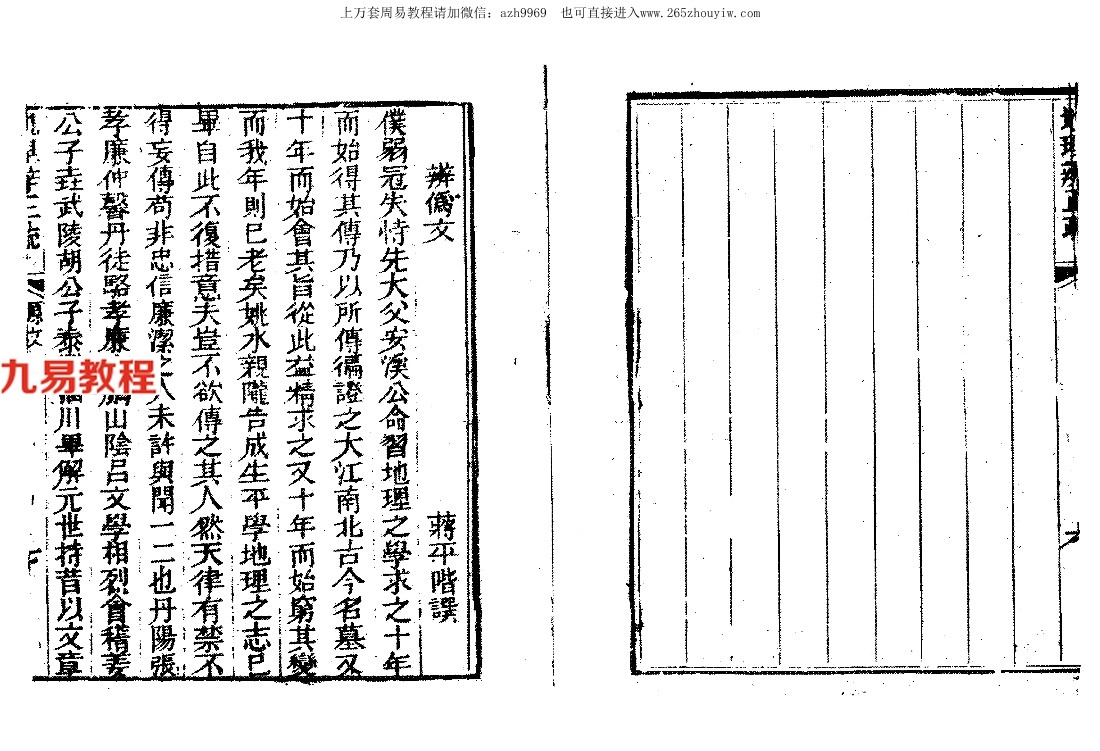 上万套周易教程请加微信：azh9969　也可直接进入www.265zhouyiw.com
地理辨正疏
辨僞文
蔣平階譔
僕弱冠失恃先大父安溪公命習地理之學求之十年
而始得其傳乃以所傳徧證之大江南北古今名墓又
十年而始會其旨從此益精求之又十年而始窮其變
而我年則已老矣姚水親隴告成生平學地理之志已
畢自此不復措意夫豈不欲傳之其人然天律有禁不
得妄傳苟非忠信廉潔之人未許與聞一二也丹陽張
孝廉仲馨丹徒駱孝廉 山陰呂文學相烈會稽姜
公子垚武陵胡公子泰 川畢解元世持昔以文章
原文
九易教程